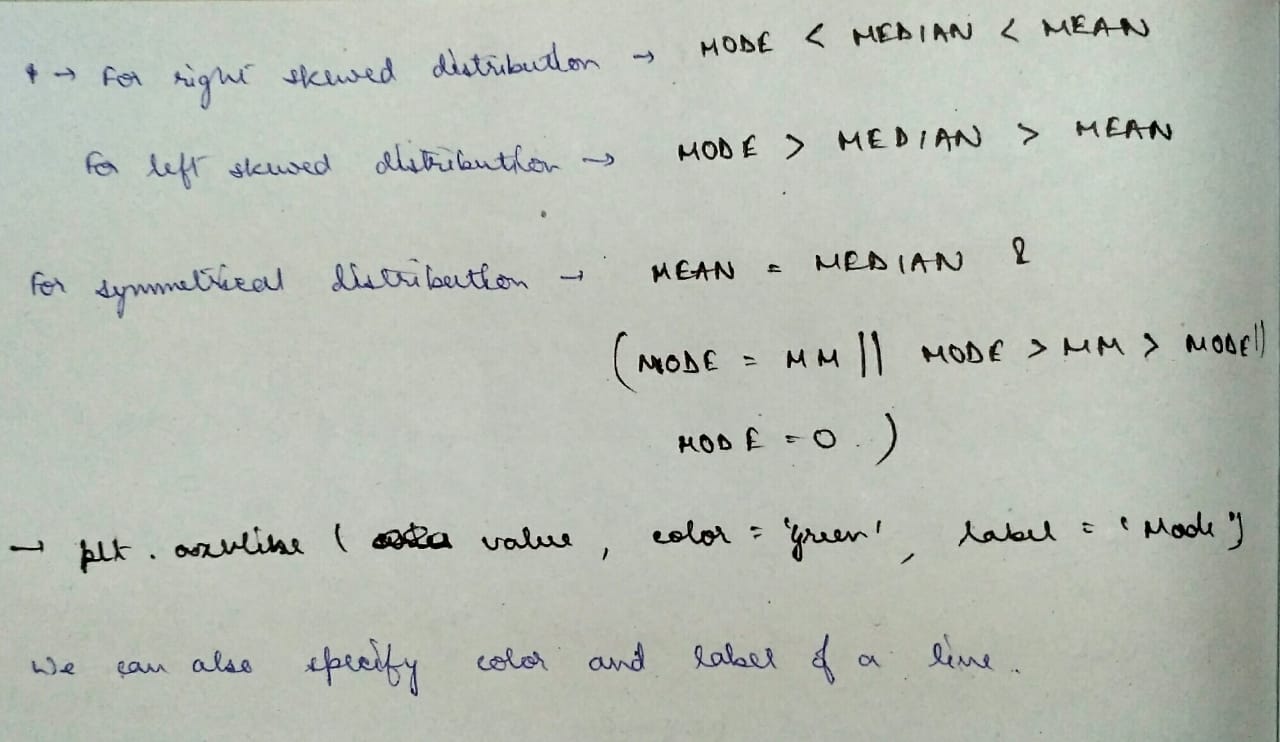 → For right skewed distribution → MODE < MEDIAN < MEAN
for left skewed distribution → MODE > MEDIAN > MEAN
for symmetrical distribution → MEAN = MEDIAN &
(MODE = MM || MODE > MM > MODE ||
MODE = 0.)
→ plt.axvline ( value, color = 'green', label = 'Mode')
We can also specify color and label of a line.